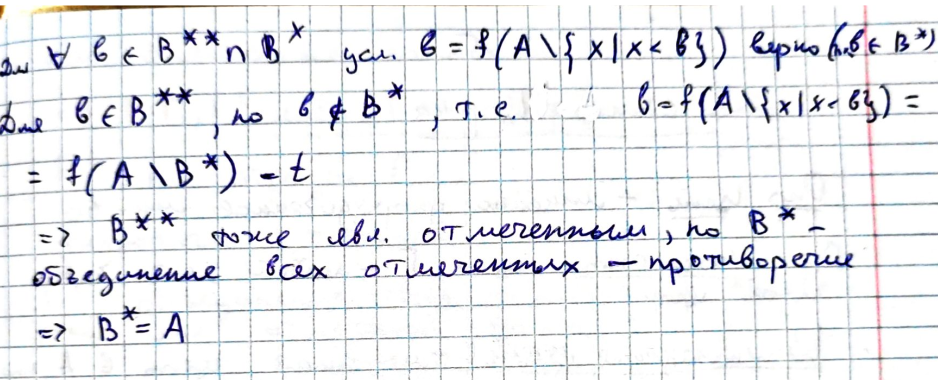 Для ∀ b ∈ B** ∩ B* усл. b = f(A \ {x | x < b}) верно (т.к. b ∈ B*)
Для b ∈ B**, но b ∉ B*, т.е. b = f(A \ {x | x < b}) =
= f(A \ B*) = t
=> B** тоже явл. отмеченным, но B* –
объединение всех отмеченных – противоречие
=> B* = A